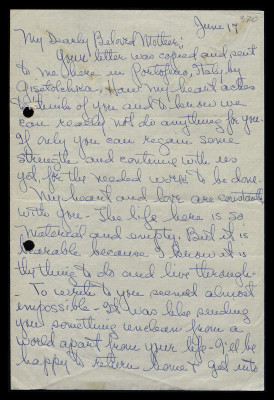 320
June 17
My Dearly Beloved Mother;
Your letter was copied and sent
to me here in Portofino, Italy by
How my heart aches
to think of you and to know we
can really not do anything for you.
If only you can regain some
strength and continue with us
yet for the needed work to be done.
My heart and love are constantly
with you - The life here is so
material and empty. But it is
bearable because I know it is
the thing to do and live through -
- To write to you seemed almost
impossible - It was like sending
you something unclean from a
world apart from your life - I'll be
happy to return home & get into